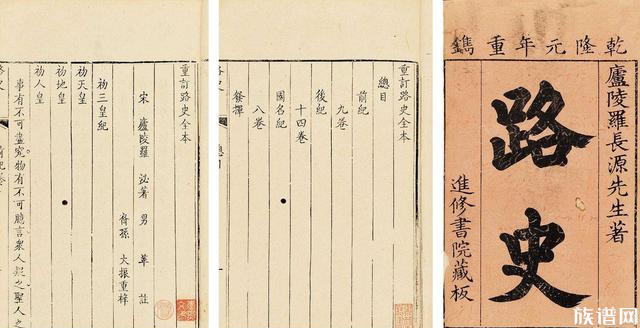 乾隆元年重鐫
廬陵羅長源先生著
路史
進修書院藏板
重訂路史全本
總目
前紀
九卷
後紀
十四卷
國名紀
八卷
發揮
重訂路史全本
宋 廬陵羅 泌著 男 苹 註
裔孫 大振重梓
初三皇紀
初天皇
初地皇
初人皇
事有不可盡究物有不可臆言衆人疑之聖人之
族谱网